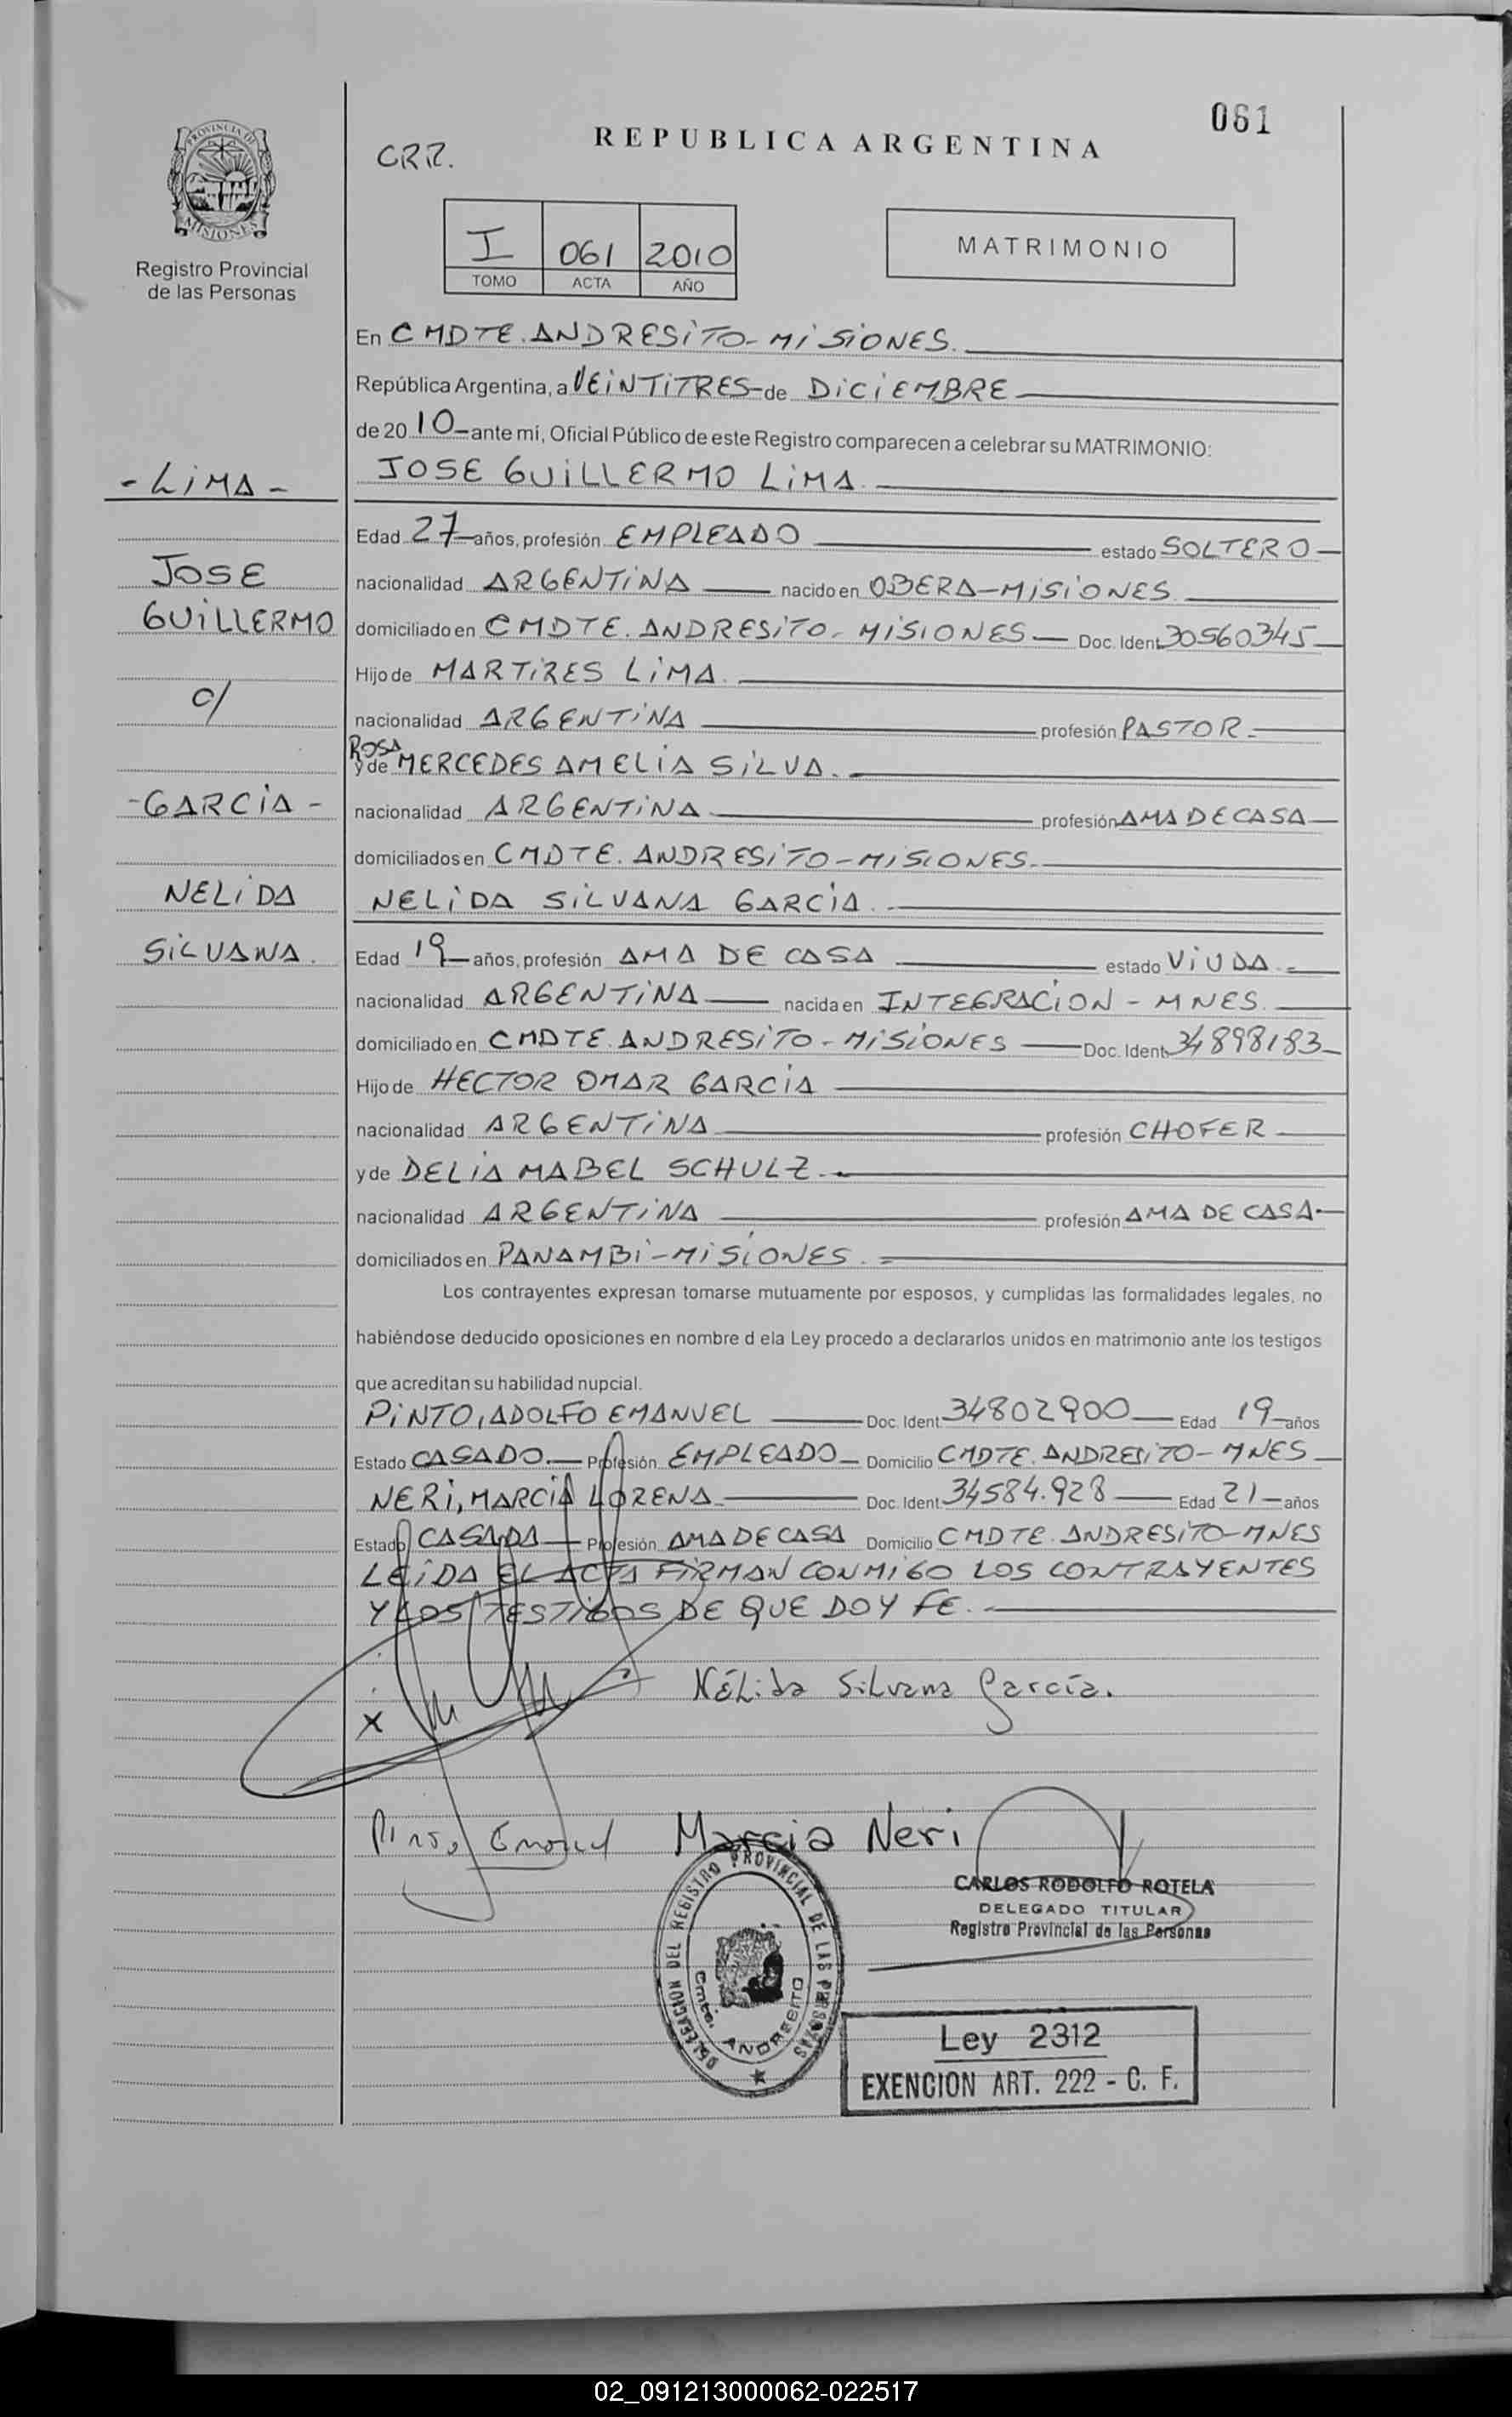 061
REPUBLICA ARGENTINA
CRR.
PROVINCIA DE MISIONES
Registro Provincial
de las Personas
I 061 2010
TOMO ACTA AÑO
MATRIMONIO
En CMDTE. ANDRESITO - MISIONES.
República Argentina, a VEINTITRES de DICIEMBRE
de 20 10 ante mí, Oficial Público de este Registro comparecen a celebrar su MATRIMONIO:
- LIMA -
JOSE GUILLERMO LIMA
Edad 27 años, profesión EMPLEADO estado SOLTERO
JOSE
nacionalidad ARGENTINA nacido en OBERA - MISIONES
GUILLERMO
domiciliado en CMDTE. ANDRESITO - MISIONES Doc. Ident. 30560345
Hijo de MARTIRES LIMA
c/
nacionalidad ARGENTINA profesión PASTOR
ROSA
y de MERCEDES AMELIA SILVA.
- GARCIA -
nacionalidad ARGENTINA profesión AMA DE CASA
domiciliados en CMDTE. ANDRESITO - MISIONES.
NELIDA
NELIDA SILVANA GARCIA.
SILVANA.
Edad 19 años, profesión AMA DE CASA estado VIUDA
nacionalidad ARGENTINA nacida en INTEGRACION - MNES.
domiciliado en CMDTE. ANDRESITO - MISIONES Doc. Ident. 34898183
Hijo de HECTOR OMAR GARCIA
nacionalidad ARGENTINA profesión CHOFER
y de DELIA MABEL SCHULZ.
nacionalidad ARGENTINA profesión AMA DE CASA
domiciliados en PANAMBI - MISIONES.
Los contrayentes expresan tomarse mutuamente por esposos, y cumplidas las formalidades legales, no
habiéndose deducido oposiciones en nombre d ela Ley procedo a declararlos unidos en matrimonio ante los testigos
que acreditan su habilidad nupcial.
PINTO, ADOLFO EMANUEL Doc. Ident. 34802900 Edad 19 años
Estado CASADO. Profesión EMPLEADO Domicilio CMDTE. ANDRESITO - MNES
NERI, MARCIA LORENA Doc. Ident. 34584.928 Edad 21 años
Estado CASADA Profesión AMA DE CASA Domicilio CMDTE. ANDRESITO - MNES
LEIDA EL ACTA FIRMAN CONMIGO LOS CONTRAYENTES
Y LOS TESTIGOS DE QUE DOY FE.
X
Nélida Silvana García.
Pinto Emanuel Marcia Neri
CARLOS RODOLFO ROTELA
DELEGADO TITULAR
Registro Provincial de las Personas
DELEGACION DEL REGISTRO PROVINCIAL DE LAS PERSONAS
Cmte. ANDRESITO
Ley 2312
EXENCION ART. 222 - C. F.
02_091213000062-022517